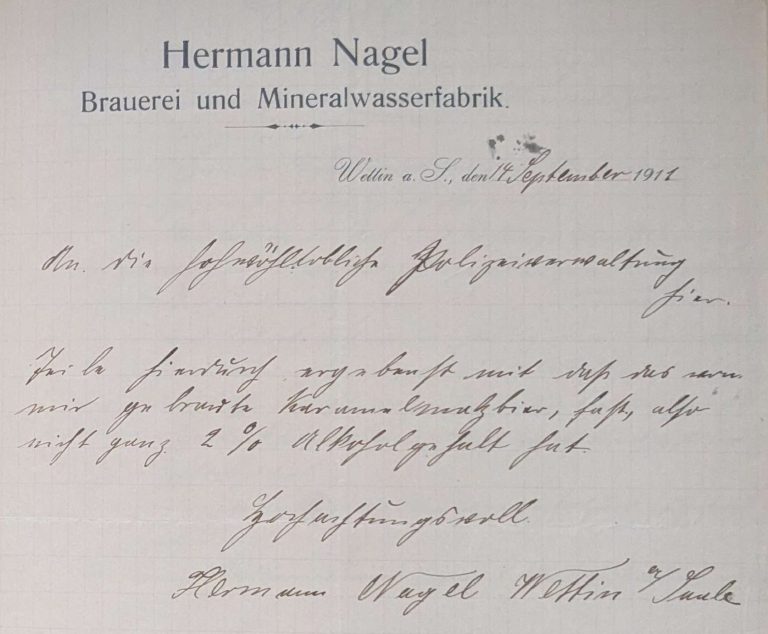 Hermann Nagel
Brauerei und Mineralwasserfabrik.
Wettin a. S., den 14 September 1911
An die hohwöhllobliche Polizeiverwaltung
hier.
Teile hierdurch ergebenst mit daß das von
mir gebraute Karamelmalzbier, fast, also
nicht ganz 2 % Alkoholgehalt hat.
Hochachtungsvoll.
Hermann Nagel Wettin a/Saale